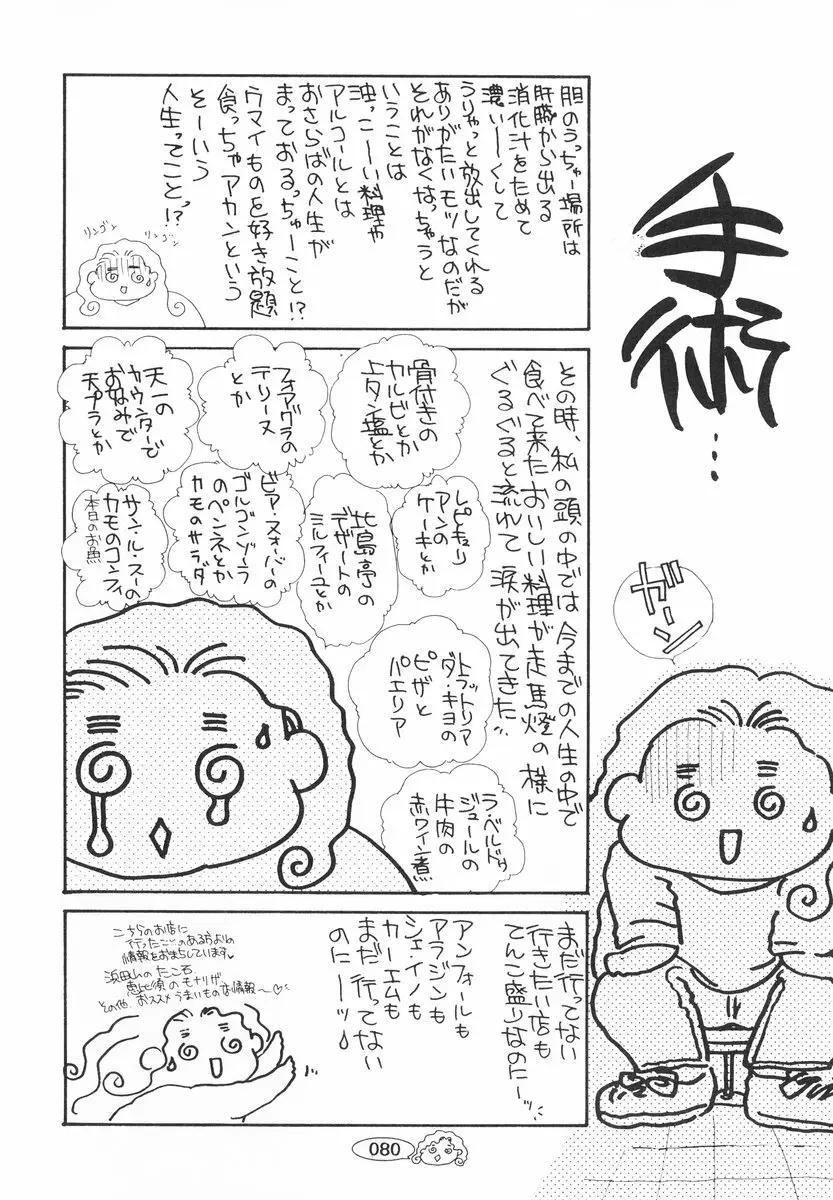 手術…
ガーン
胆のうっちゅー場所は
肝臓から出る
消化汁をためて
濃い〜くして
うりゃっと放出してくれる
ありがたいモツなのだが
それがなくなっちゃうと
いうことは
油っこーい料理や
アルコールとは
おさらばの人生が
まっておるっちゅーこと!?
ウマイものを好き放題
食っちゃアカンという
そーいう
人生ってこと!?
リンゴン
リンゴン
その時、私の頭の中では今までの人生の中で
食べて来たおいしい料理が走馬燈の様に
ぐるぐると流れて涙が出てきた…
骨付きの
カルビとか
上タン塩とか
フォアグラの
テリーヌ
とか
天一の
カウンターで
お好みで
天プラとか
レピキュリ
アンの
ケーキとか
比島亭の
デザートの
ミルフィーユとか
ビア・ヌォーバーの
ゴルゴンゾーラ
のペンネとか
カモのサラダ
サン・ル・スーの
カモのコンフィ
本日のお魚
トラットリア
ダ・キヨの
ピザと
パエリア
ラ・ベルドゥ
ジュールの
牛肉の
赤ワイン煮
まだ行ってない
行きたい店も
てんこ盛りなのにーッ
アンフォールも
アラジンも
シェ・イノも
カーエムも
まだ行ってない
のにーッ
こちらのお店に
行ったことのある方よりの
情報をおまちしています♥
浜田山のたこ石
恵比須のモナリザ
その他、おススメうまいものな情報〜♡
080